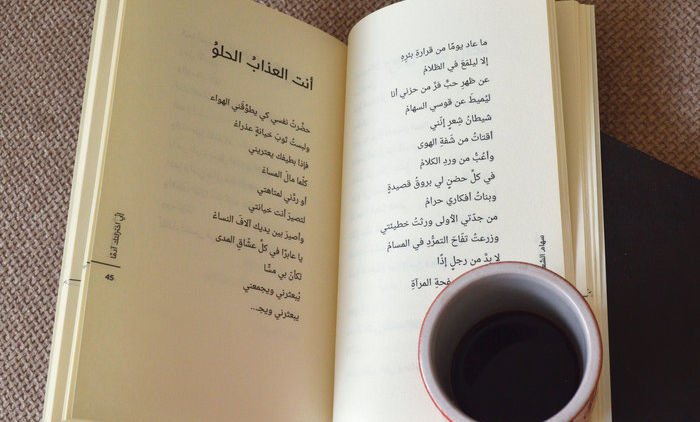 ما عاد يومًا من قرارةِ بئرِهِ
إلا ليلمَعَ في الظلامْ
عن ظهرِ حبٍّ فرَّ من حزني أنا
ليُميطَ عن قوسي السهامْ
شيطانُ شِعرٍ إنّني
أقتاتُ من شَفَةِ الهوى
وأعُبُّ من وردِ الكلامْ
في كلِّ حضنٍ لي بروقُ قصيدةٍ
وبناتُ أفكاري حرامْ
من جدّتي الأولى ورثتُ خطيئتي
وزرعتُ تفّاحَ التمرُّدِ في المسامْ
لا بدَّ من رجلٍ إذًا
المرآةِ
سهام
أنت العذابُ الحلوُ
حضّرتُ نفسي كي يطوّقَني الهواء
ولبستُ ثوبَ خيانةٍ عذراءْ
فإذا بطيفك يعتريني
كلّما مالَ المساءْ
أو ردَّني لمتاهتي
لتصيرَ أنت خيانتي
وأصيرَ بين يديك آلافَ النساءْ
يا عابرًا في كلِّ عشّاقِ المدى
تكأنّ بي مسًّا
يُبعثرني ويجمعني
يبعثرني ويجـ...
45